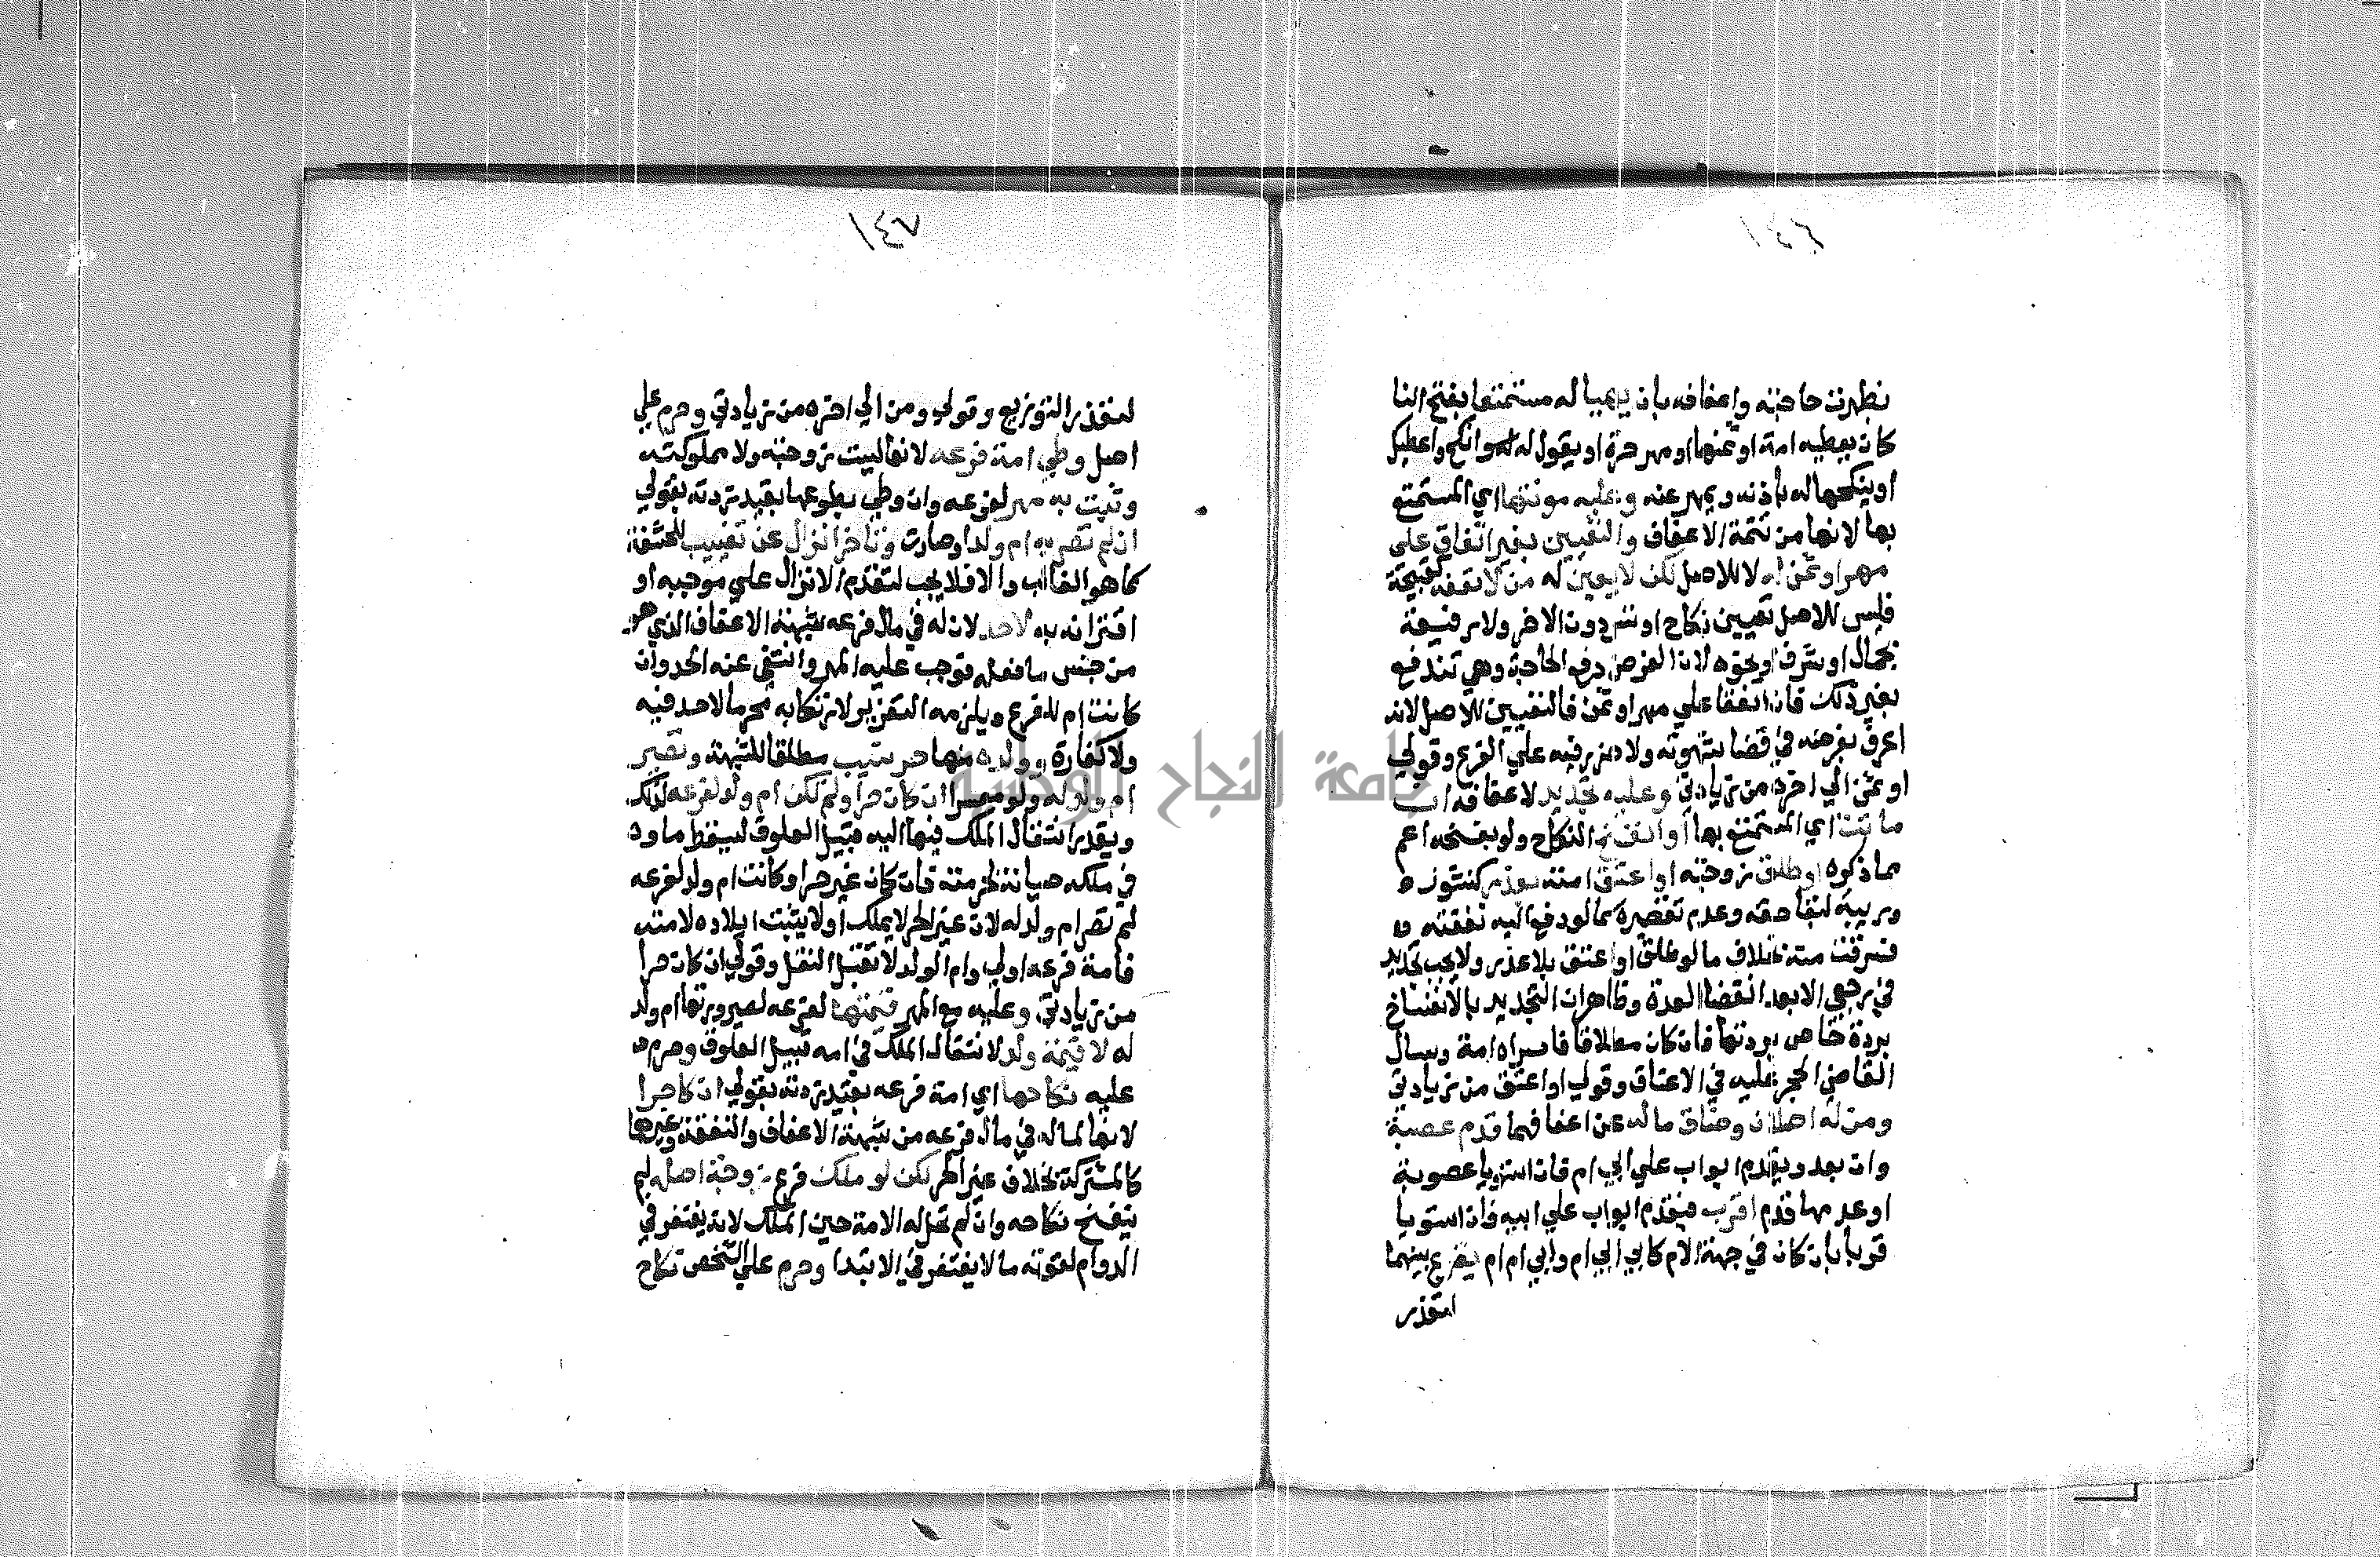 ١٤٦
نظهرت حاجته واعفافه بان يهييا له مستمتعا بفتح التا
كان يعطيه امة او ثمنها او مهر حرة او يقول له انكح واعطيك
او ينكحها له باذنه ويمهر عنه وعليه مونتها اي المستمتع
بها لانها من تتمة الاعفاف والتعيين بغير اتفاق على
مهر او ثمن له لا للاصل لكن لا يعين له من لا تعفه كقبيحة
فليس للاصل تعيين نكاح او تسر دون الاخر ولا رفيعة
بجمال او شرف او نحوه لان الغرض دفع الحاجة وهي تندفع
بغير ذلك فان اتفقا علي مهر او ثمن فالتعيين للاصل لانه
اعرف بغرضه في قضا شهوته ولا ضرر فيه علي الفرع وقولي
او ثمن الي اخره من زيادتي وعليه تجديد لاعفافه ان
ماتت اي المستمتع بها او انفسخ النكاح ولو بفسخه اعم
مما ذكره او طلق زوجته او اعتق امته بعذر كنشوز ه
وريبة لبقا حقه وعدم تقصيره كما لو دفع اليه نفقته
فسرقت منه بخلاف ما لو طلق او اعتق بلا عذر ولا يجب تجديد
في رجعي الا بعد انقضا العدة وظاهر ان التجديد بالانفساخ
بردة خاص بردتها فان كان مطلاقا فاسراه امة وسال
القاضي الحجر عليه في الاعتاق وقولي او اعتق من زيادتي
ومن له اصلان وضاق ماله عن اعفافهما قدم عصبة
وان بعد ويقدم ابو اب علي ابي ام فان استويا عصوبة
او عدمها قدم اقرب فيقدم ابو اب علي ابيه فان استويا
قربا بان كان في جهة الام كابي ابي ام وابي ام ام يقرع بينهما
لتعذر
١٤٧
لتعذر التوزيع وقولي ومن الي اخره من زيادتي وحرم علي
اصل وطي امة فرعه لانها ليست زوجته ولا مملوكته
وثبت به مهر لفرعه وان وطي بطوعها بقيد زدته بقولي
ان لم تصر به ام ولد او صارت وتاخر انزال عن تغييب الحشفة
كما هو الغالب والا فلا يجب لتقدم الانزال علي موجبه او
اقترانه به لا حد لان له في مال فرعه شبهة الاعفاف الذي هو
من جنس ما فعله فوجب عليه المهر وانتفى عنه الحد وان
كانت ام للفرع ويلزمه التعزير لارتكابه محرما لا حد فيه
ولا كفارة وولده منها حر نسيب مطلقا للشبهة وتصير
ام ولد له ولو معسرا ان كان حرا ولم تكن ام ولد لفرعه لذلك
ويقدر انتقال الملك فيها اليه قبيل العلوق ليسقط ماوه
في ملكه صيانة لحرمته فان كان غير حر او كانت ام ولد لفرعه
لم تصر ام ولد له لان غير الحر لا يملك او لا يثبت ايلاده لامته
فامة فرعه اولي وام الولد لا تقبل النقل وقولي ان كان حرا
من زيادتي وعليه مع المهر قيمتها لفرعه لصيرورتها ام ولد
له لا قيمة ولد لانتقال الملك في امه قبيل العلوق وحرم
عليه نكاحها اي امة فرعه بقيد زدته بقولي ان كان حرا
لانها لماله في مال فرعه من شبهة الاعفاف والنفقة وغيرها
كالمشتركة بخلاف غير الحر لكن لو ملك فرع زوجة اصله لم
ينفسخ نكاحه وان لم تحل له الامة حين الملك لانه يغتفر في
الدوام لقوته ما لا يغتفر في الابتدا وحرم علي الشخص نكاح
جامعة النجاح الوطنية